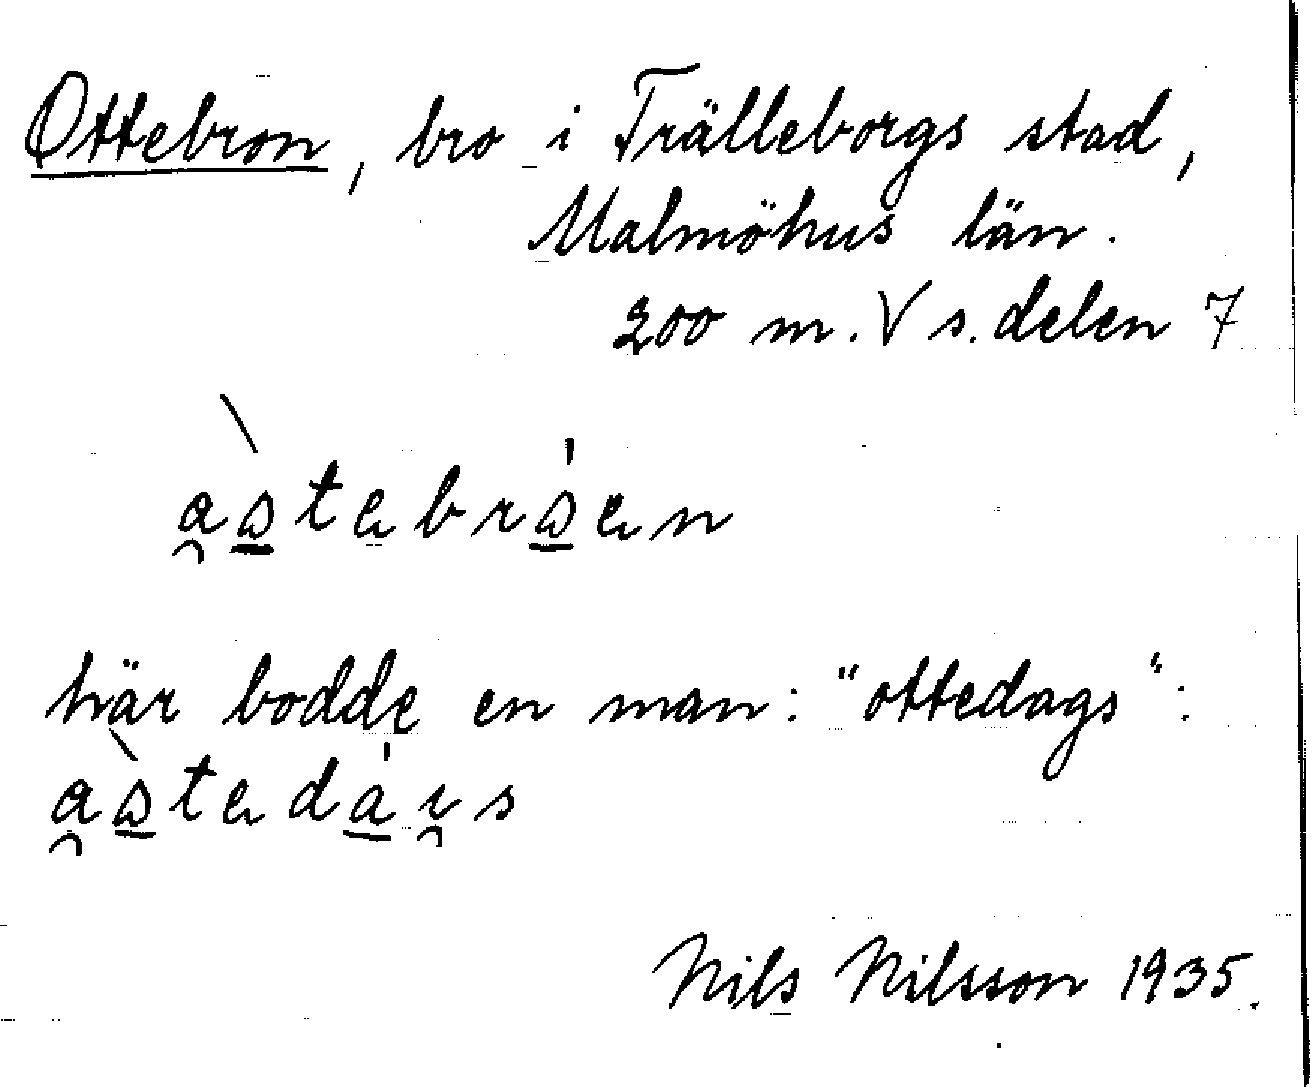 Ottebron, bro i Trälleborgs stad,
Malmöhus län.
200 m. V s. delen 7
här bodde en man: "ottedags":
Nils Nilsson 1935.